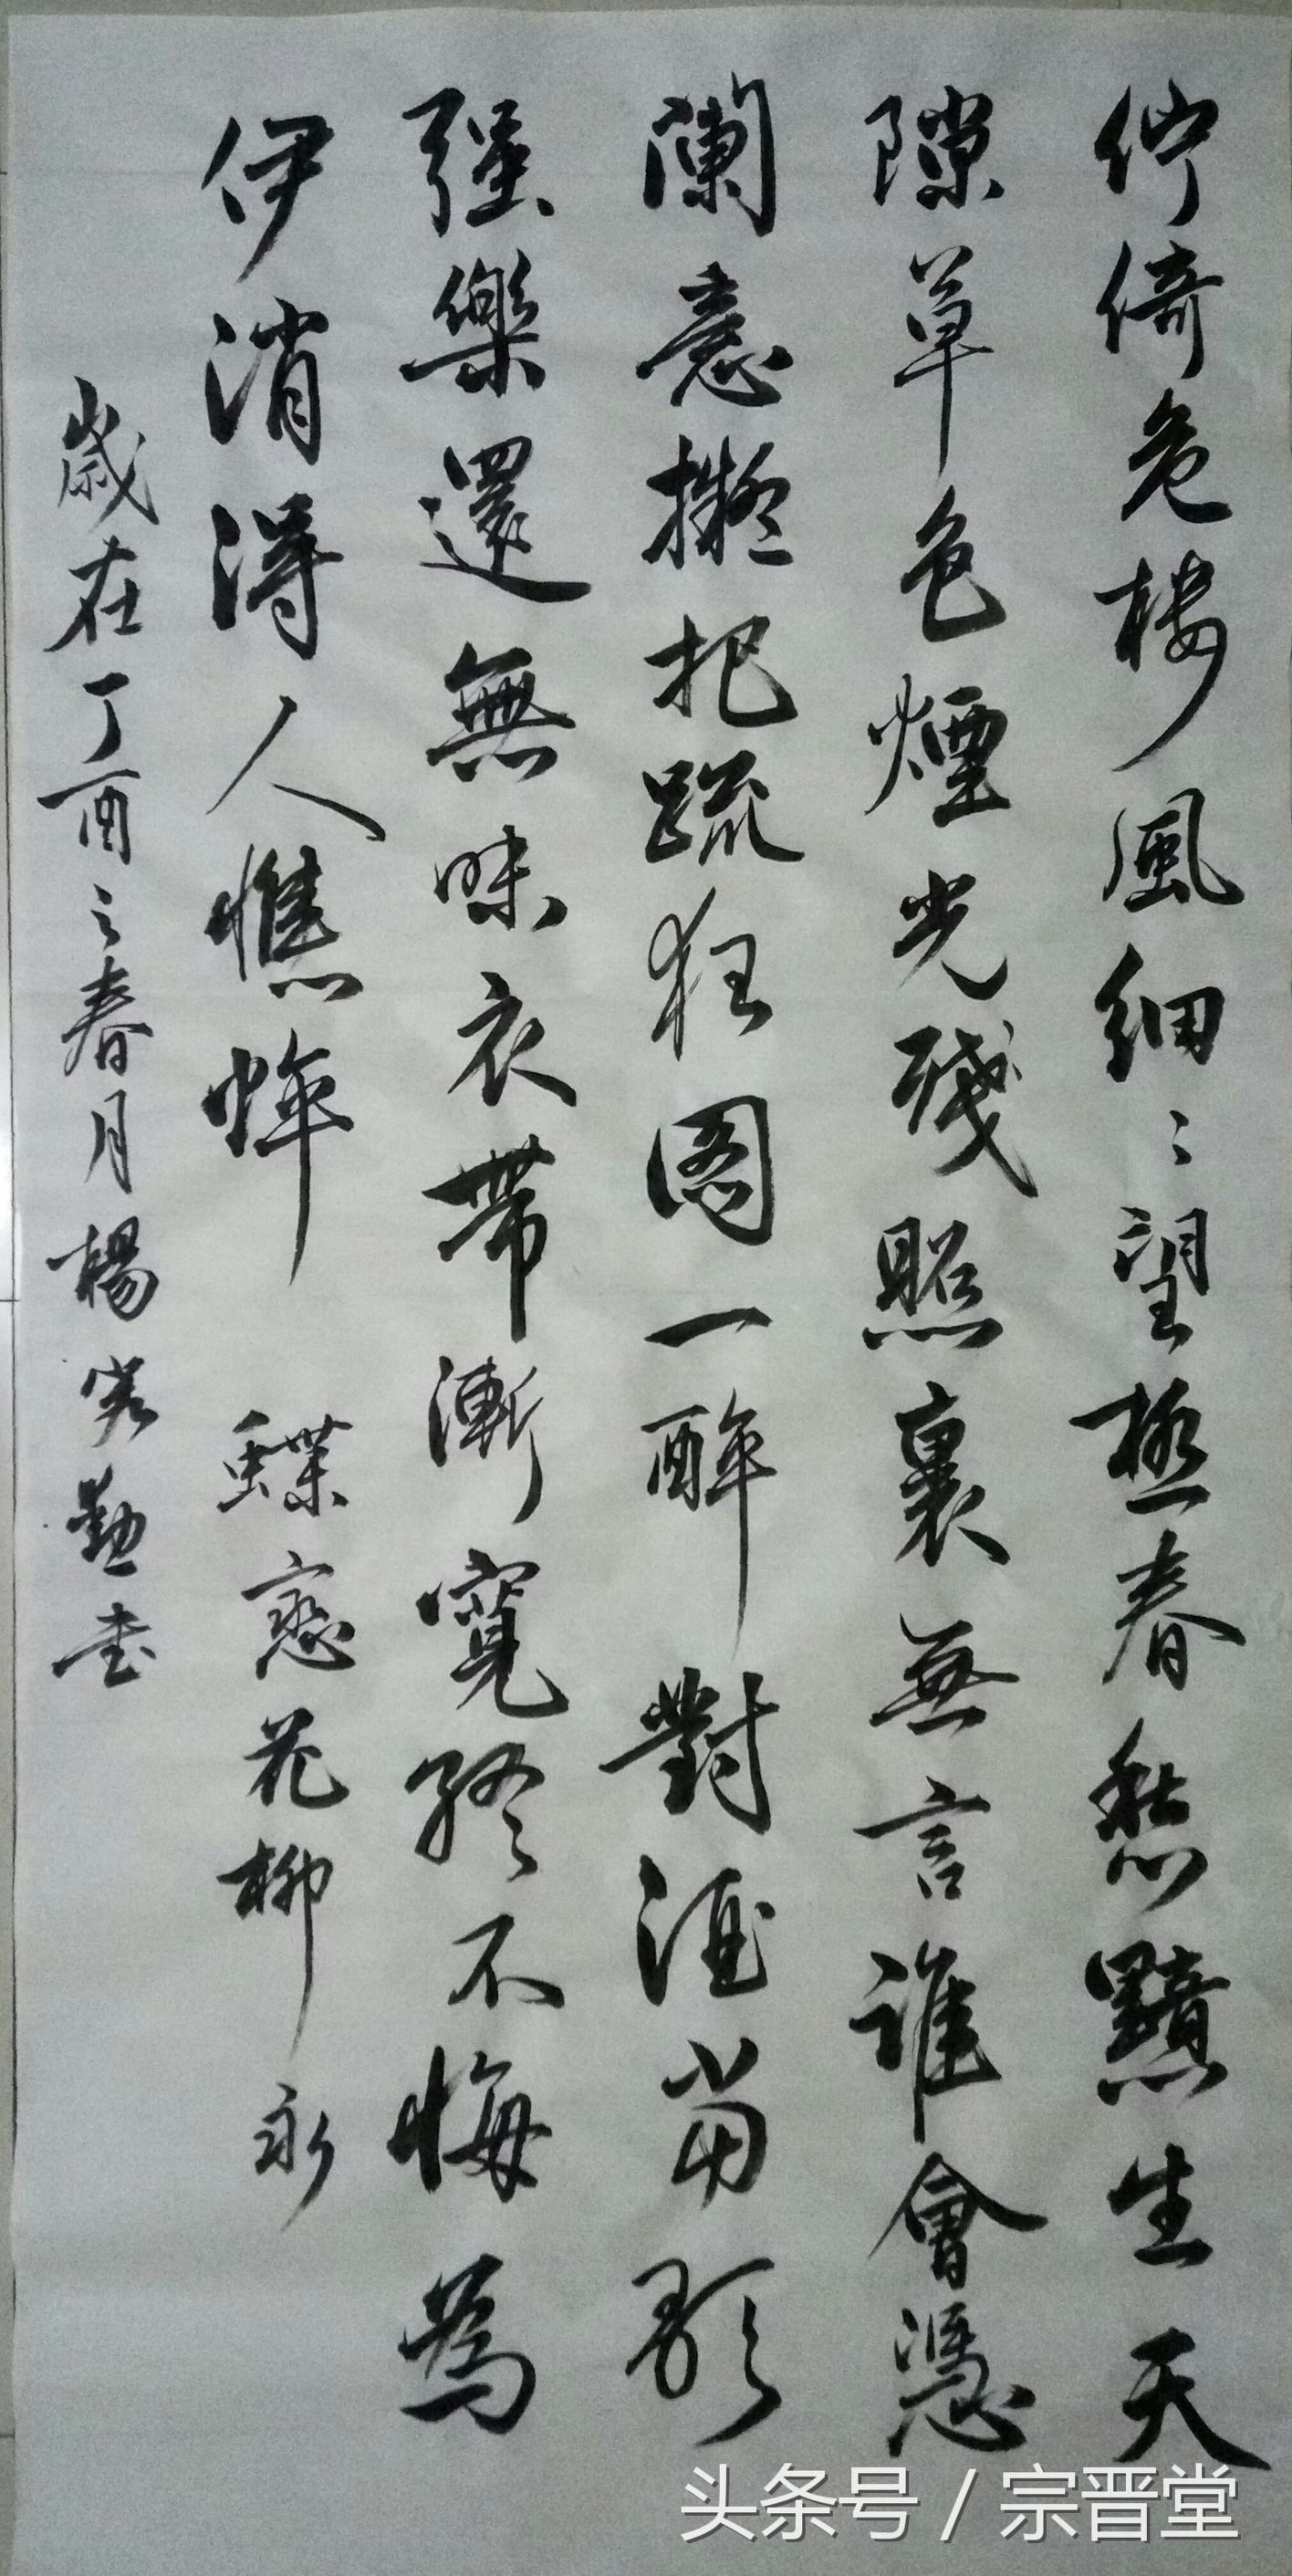 佇倚危楼風細〻望極春愁黯生天
隙草色煙光殘照裏無言誰會憑
闌意擬把疏狂圖一醉對酒當歌
强樂還無味衣帶漸寬終不悔為
伊消得人憔悴 蝶戀花柳永
歲在丁酉之春月楊宏勤書
头条号 / 宗晋堂